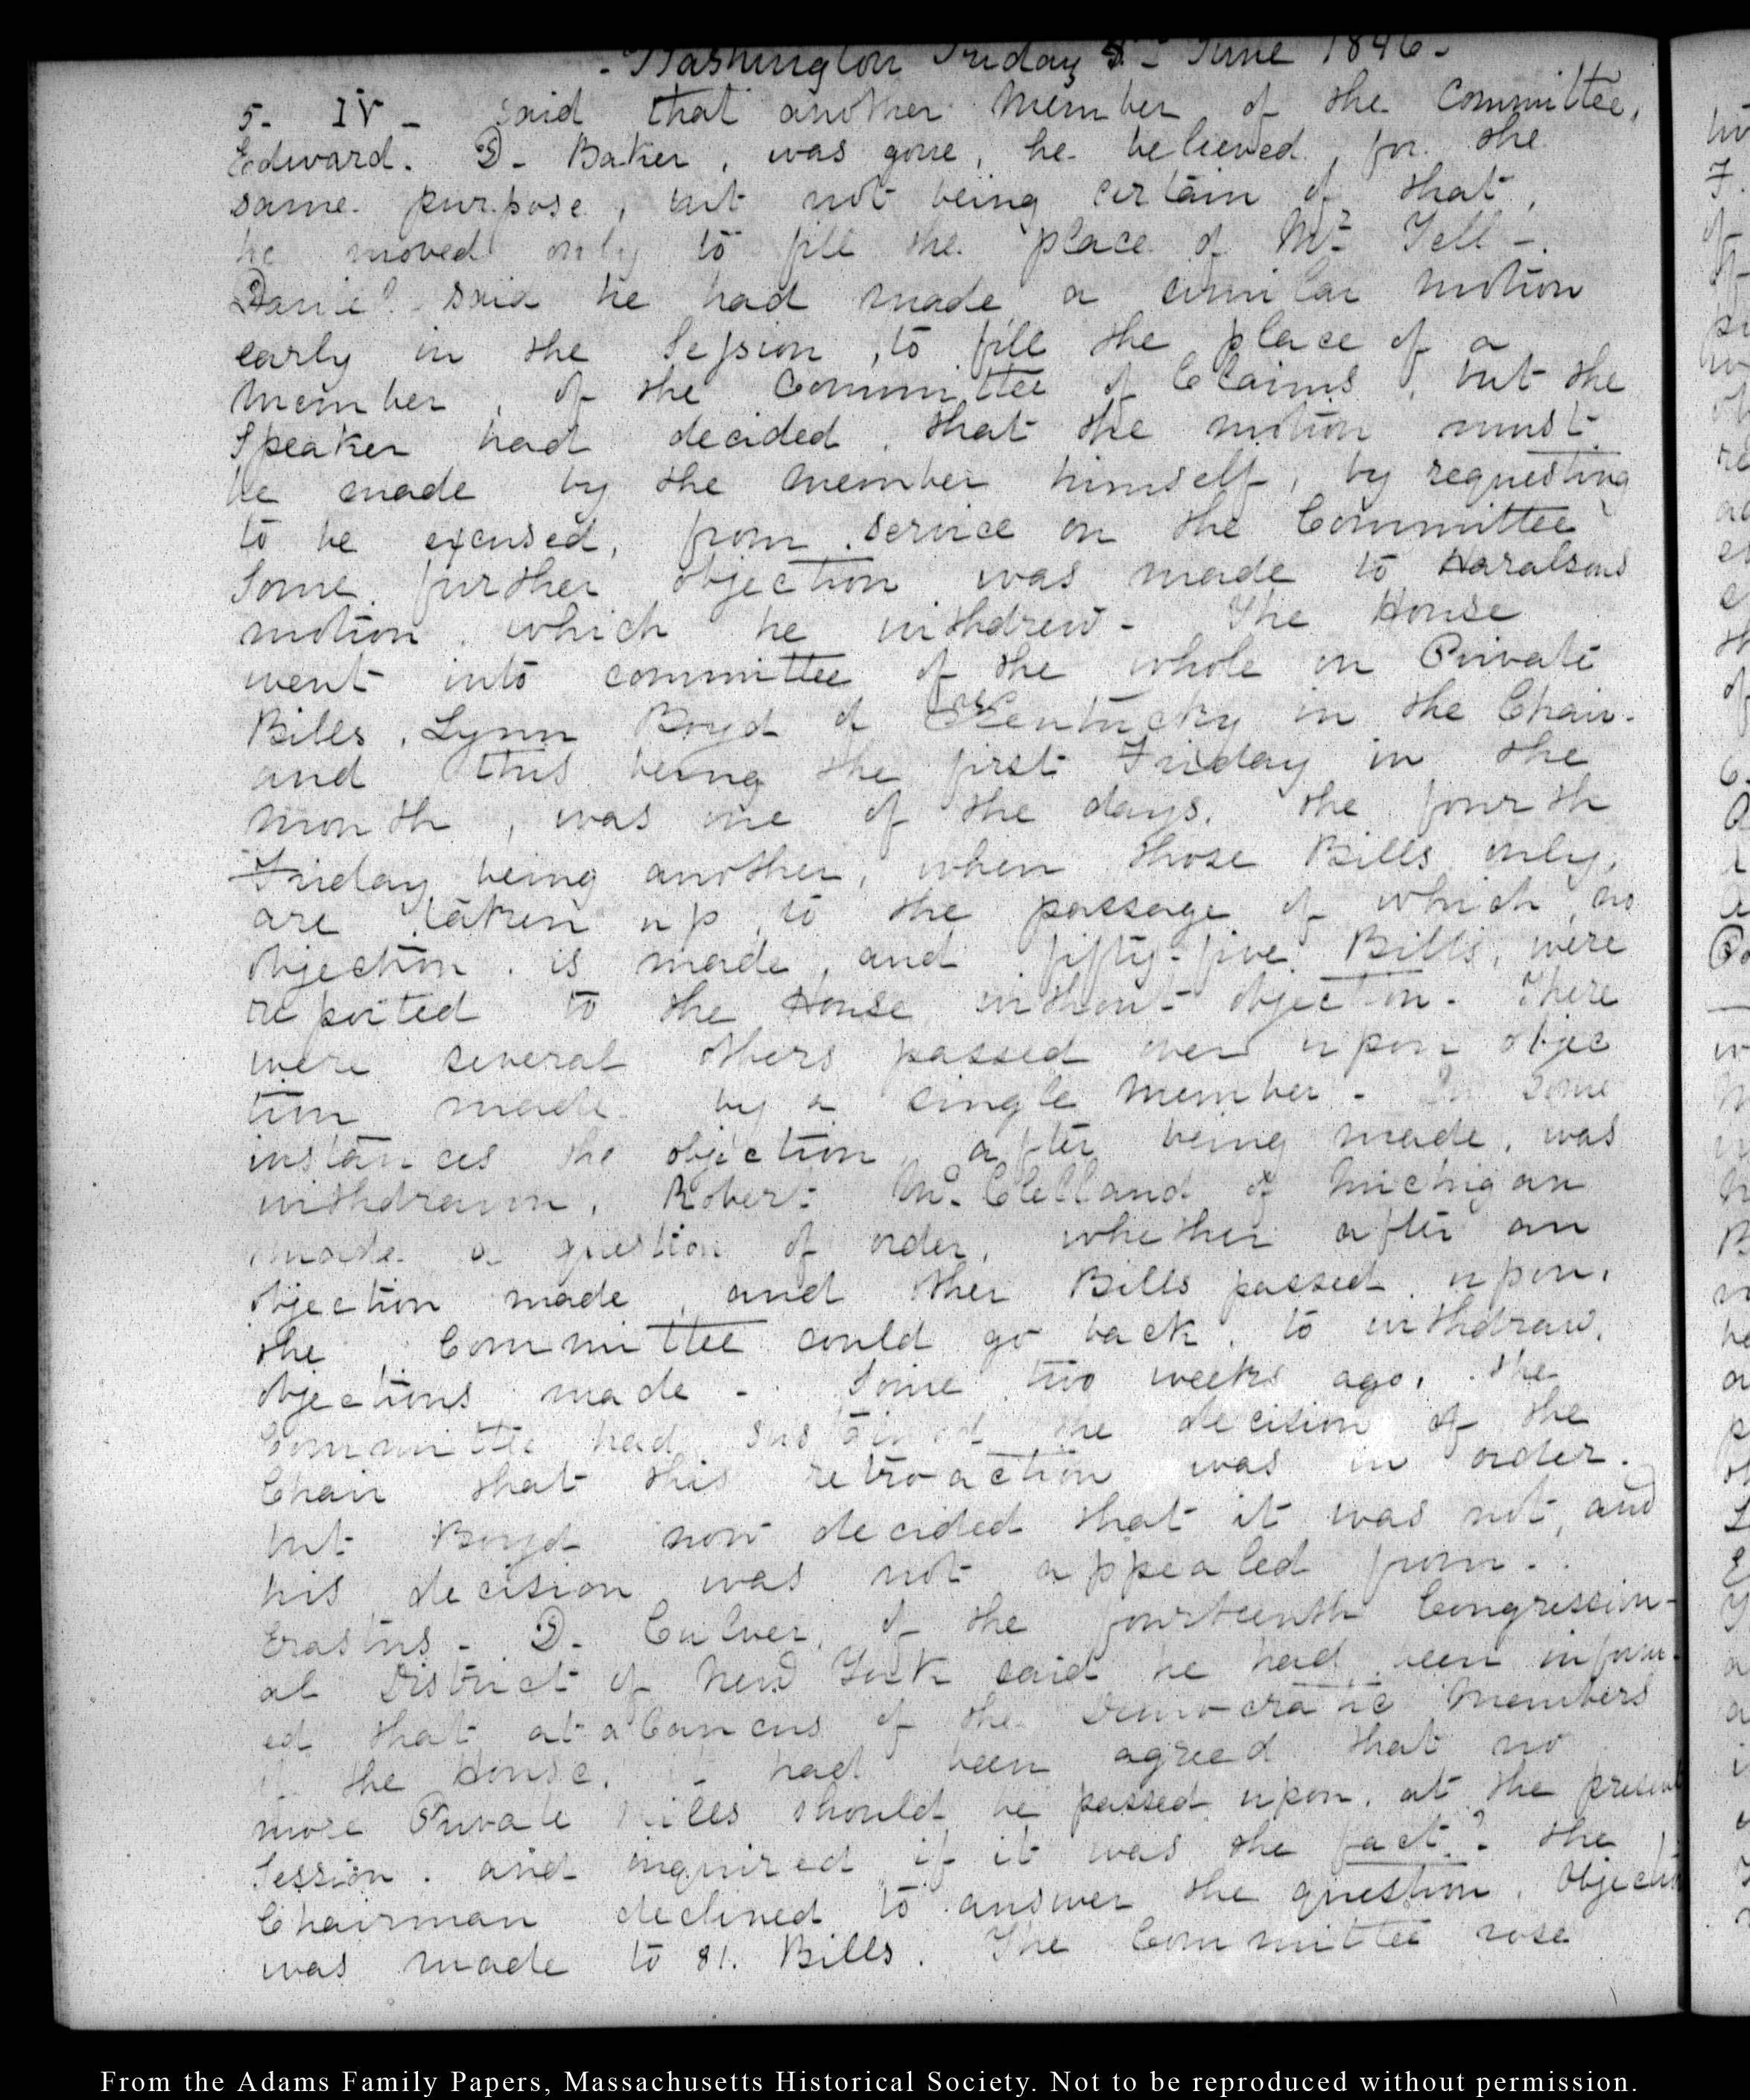 - Washington Friday 5.- June 1846-
5- IV - said that another Member of the Committee,
Edward. D- Baker, was gone, he believed, for the
same purpose, but not being certain of that,
he moved only to fill the place of Mr. Yell-.
Daniel said he had made a similar motion
early in the Session, to fill the place of a
Member, of the Committee of Claims, but the
Speaker had decided, that the motion must
be made by the Member himself, by requesting
to be excused, from service on the Committee
Some further objection was made to Haralsons
motion, which he withdrew- The House
went into committee of the whole on Private
Bills, Lynn Boyd of Kentucky in the Chair-
and this being the first Friday in the
month, was one of the days, the fourth
Friday being another, when those Bills only,
are taken up, to the passage of which no
objection, is made, and fifty-five Bills, were
reported to the House without objection- There
were several others passed over upon objec
tion made by a single Member- In some
instances the objection, after being made, was
withdrawn, Robert McClelland of Michigan
made a question of order, whether after an
objection made, and other Bills passed upon,
the Committee could go back, to withdraw,
objections made- Some two weeks ago, the
Committee had sustained the decision of the
Chair that this retroaction was in order-
but Boyd now decided that it was not, and
his decision was not appealed from-.
Erastus- D- Culver, of the fourteenth Congression-
al District of New York said he had been inform-
ed that at a Caucus of the Democratic Members
the House, it had been agreed that no
more Private Bills should be passed upon, at the present
Session, and inquired if it was the fact?- the
Chairman declined to answer the question, Objection
was made to 81. Bills. The Committee rose
From the Adams Family Papers, Massachusetts Historical Society. Not to be reproduced without permission.